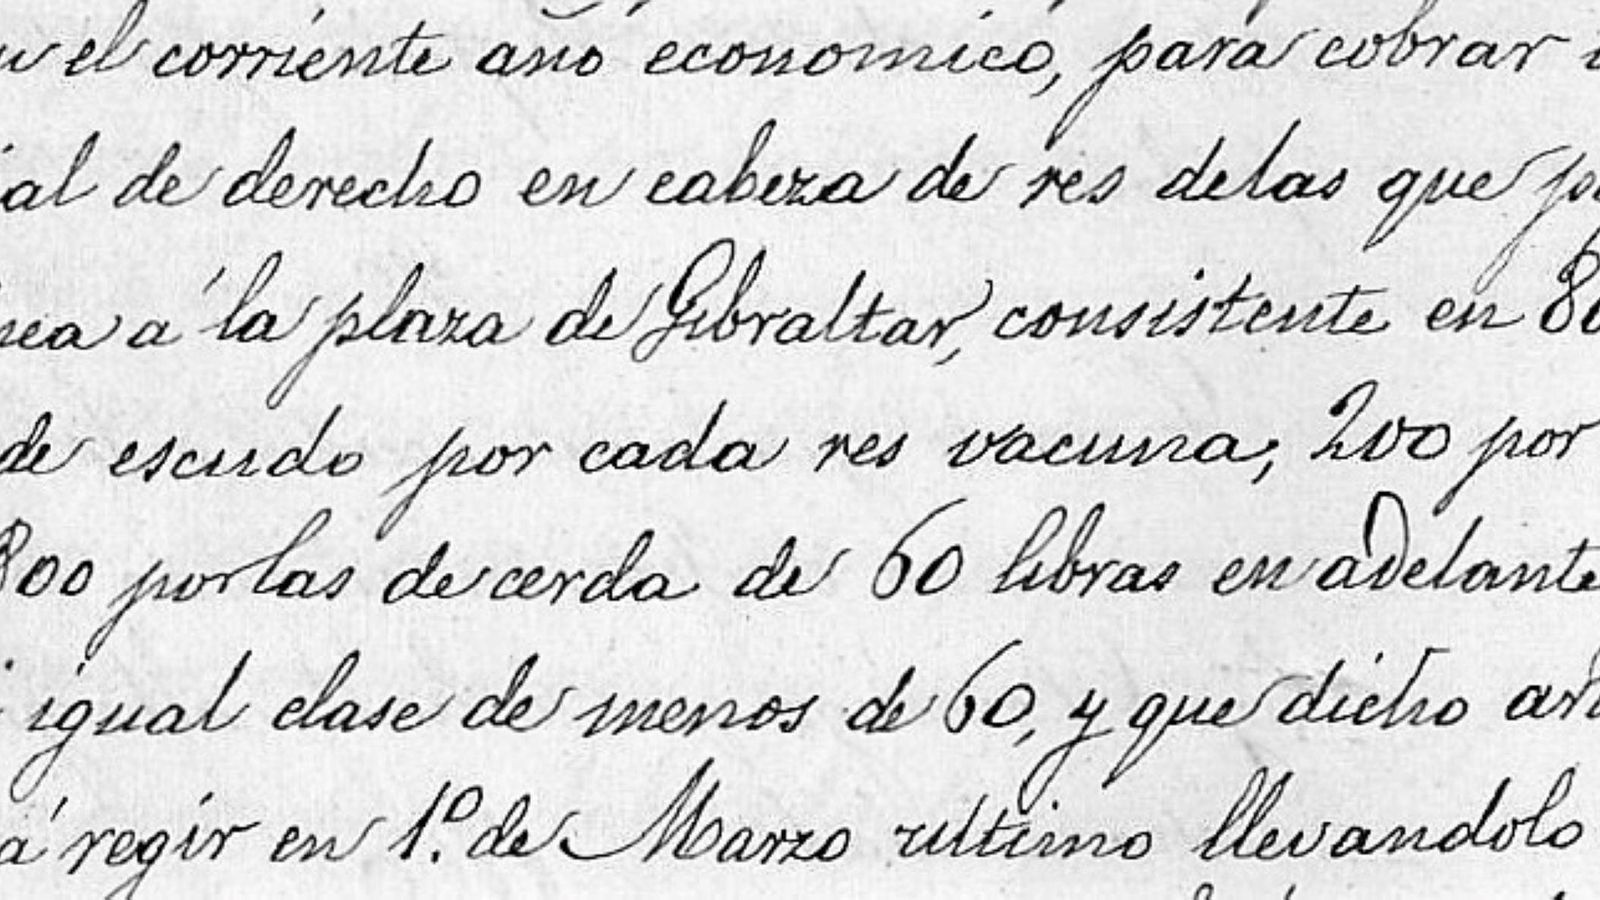 el corriente año economico, para cobrar
de derecho en cabeza de res delas que
a la plaza de Gibraltar, consistente en
de escudo por cada res vacuna; 200 por
800 por las de cerda de 60 libras en adelante
igual clase de menos de 60, y que dicho
á regir en 1º. de Marzo ultimo llevandolo